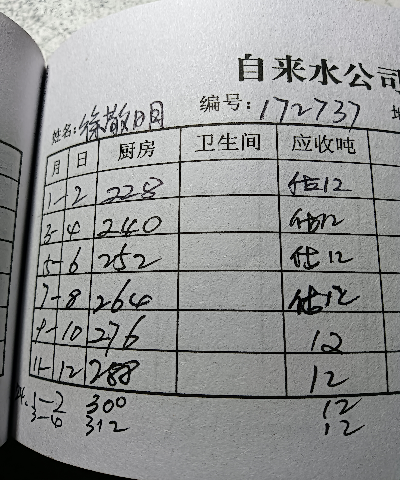 自来水公司
姓名:徐敬明 编号:172737
月 日 厨房 卫生间 应收吨
1-2 228 估12
3-4 240 估12
5-6 252 估12
7-8 264 估12
9-10 276 12
11-12 288 12
1-2 300 12
3-4 312 12